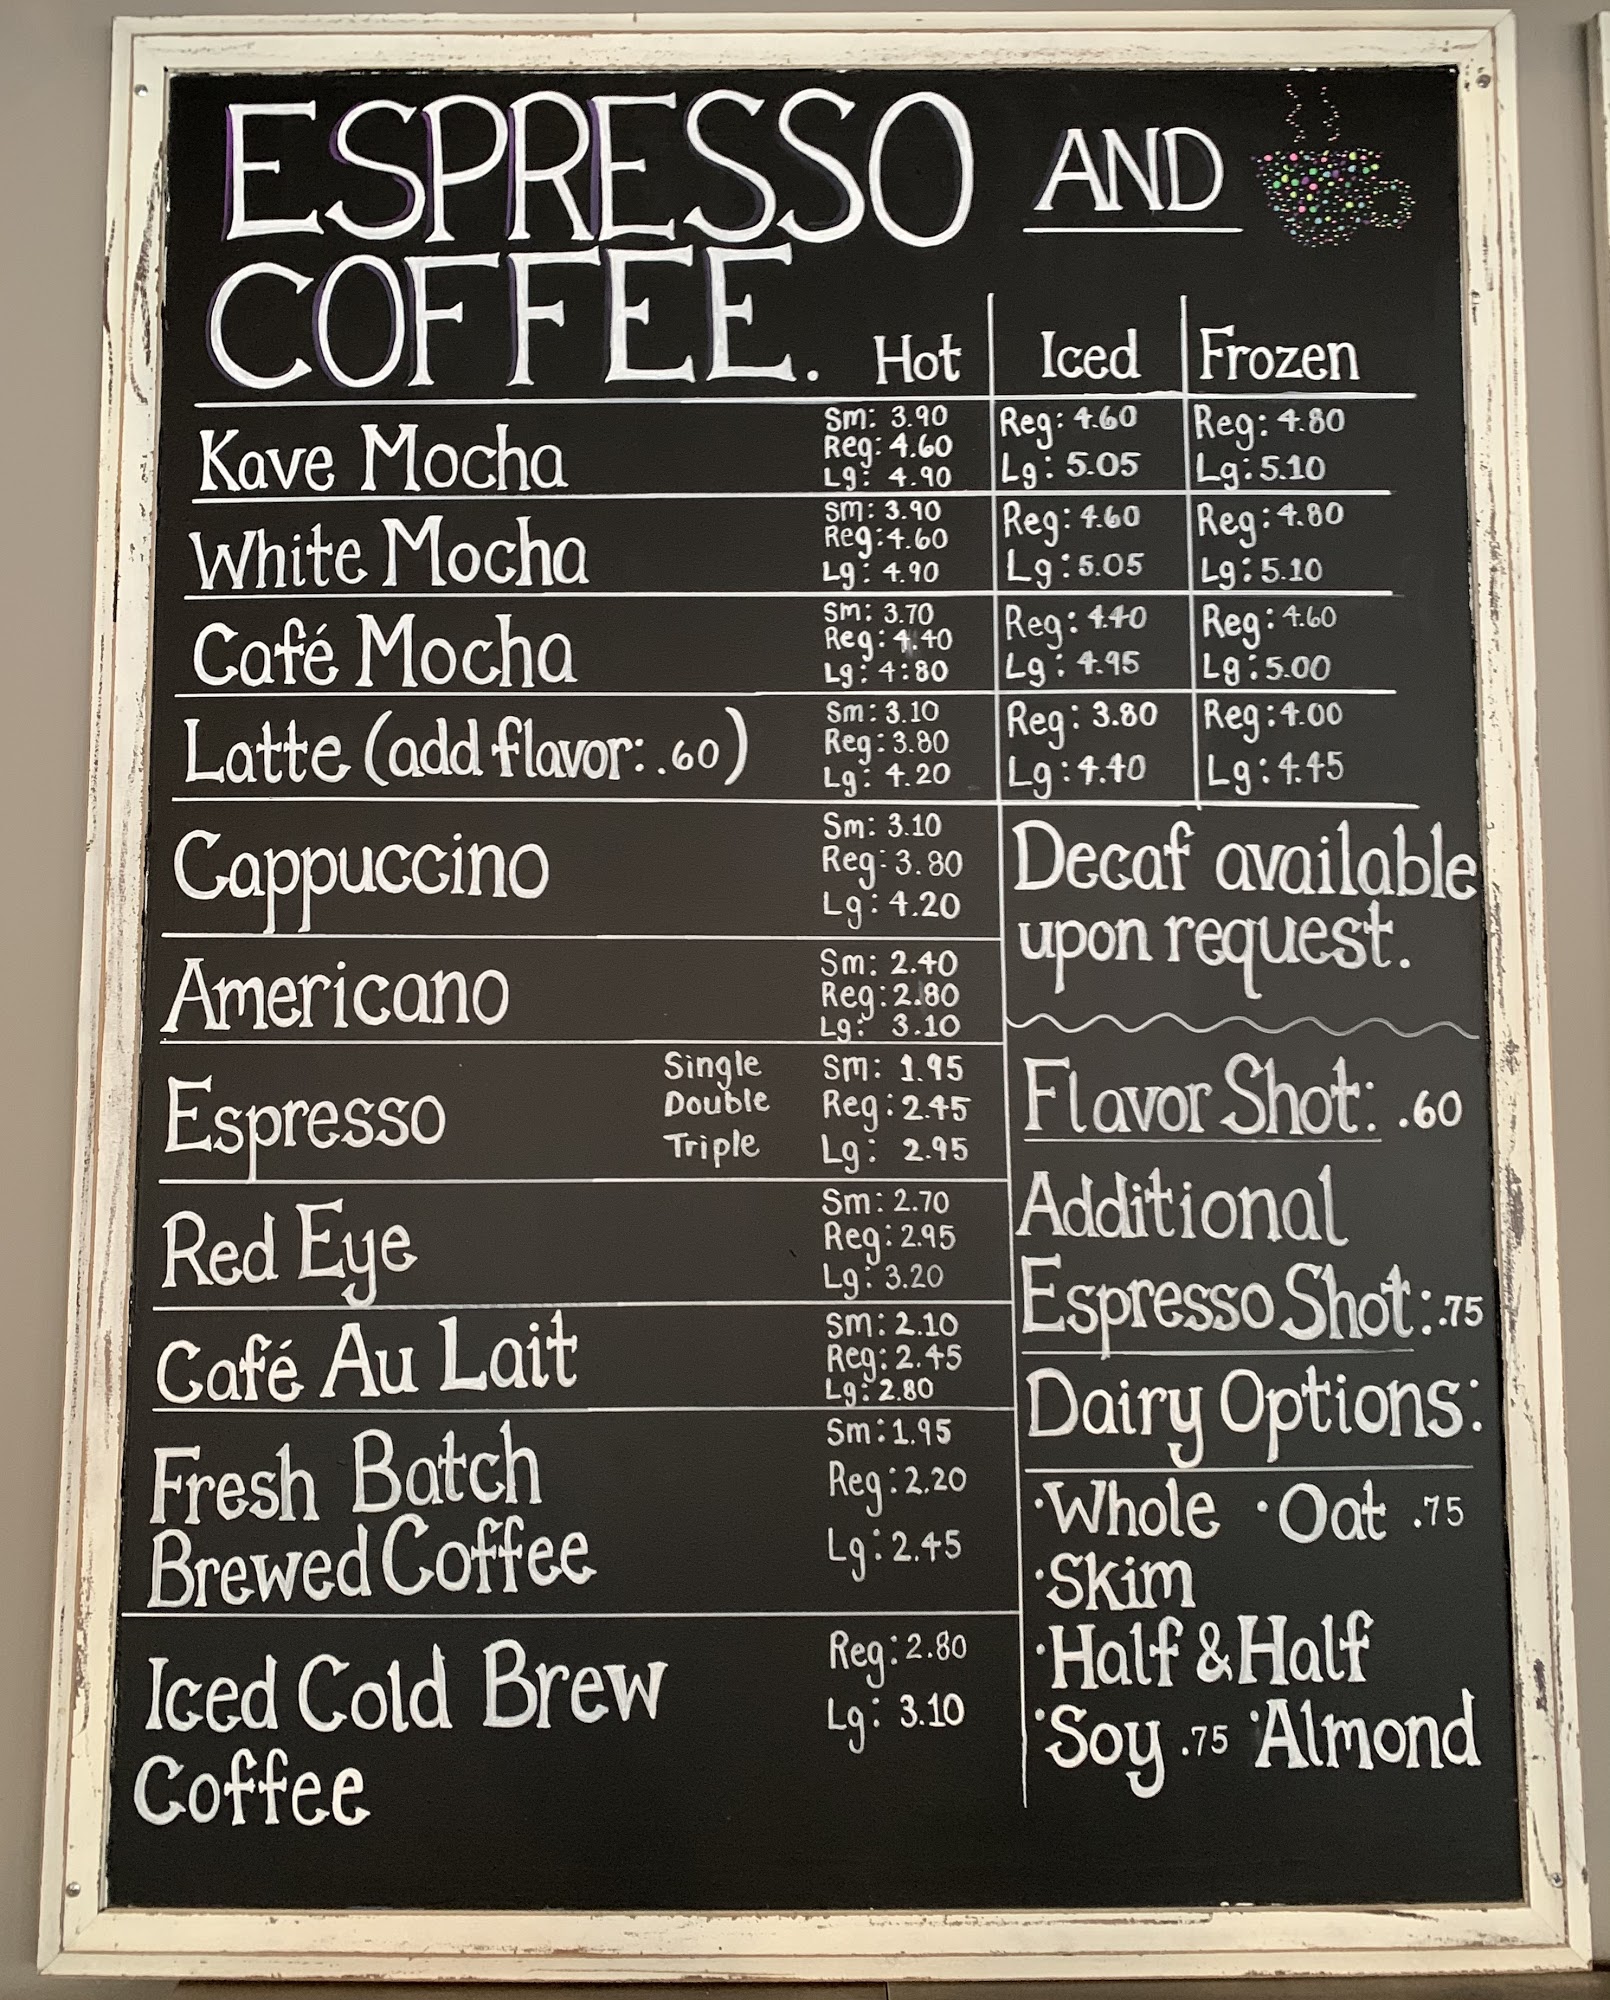 ESPRESSO AND
COFFEE.
Hot Iced Frozen
Kave Mocha
Sm: 3.90
Reg: 4.60
Lg: 4.90
Reg: 4.60
Lg: 5.05
Reg: 4.80
Lg: 5.10
White Mocha
Sm: 3.90
Reg: 4.60
Lg: 4.90
Reg: 4.60
Lg: 5.05
Reg: 4.80
Lg: 5.10
Café Mocha
Sm: 3.70
Reg: 4.40
Lg: 4:80
Reg: 4.40
Lg: 4.95
Reg: 4.60
Lg: 5.00
Latte (add flavor: .60)
Sm: 3.10
Reg: 3.80
Lg: 4.20
Reg: 3.80
Lg: 4.40
Reg: 4.00
Lg: 4.45
Cappuccino
Sm: 3.10
Reg: 3.80
Lg: 4.20
Americano
Sm: 2.40
Reg: 2.80
Lg: 3.10
Espresso
Single Sm: 1.95
Double Reg: 2.45
Triple Lg: 2.95
Red Eye
Sm: 2.70
Reg: 2.95
Lg: 3.20
Café Au Lait
Sm: 2.10
Reg: 2.45
Lg: 2.80
Fresh Batch
Brewed Coffee
Sm: 1.95
Reg: 2.20
Lg: 2.45
Iced Cold Brew
Coffee
Reg: 2.80
Lg: 3.10
Decaf available
upon request.
Flavor Shot: .60
Additional
Espresso Shot: .75
Dairy Options:
·Whole ·Oat .75
·Skim
·Half & Half
·Soy .75 ·Almond